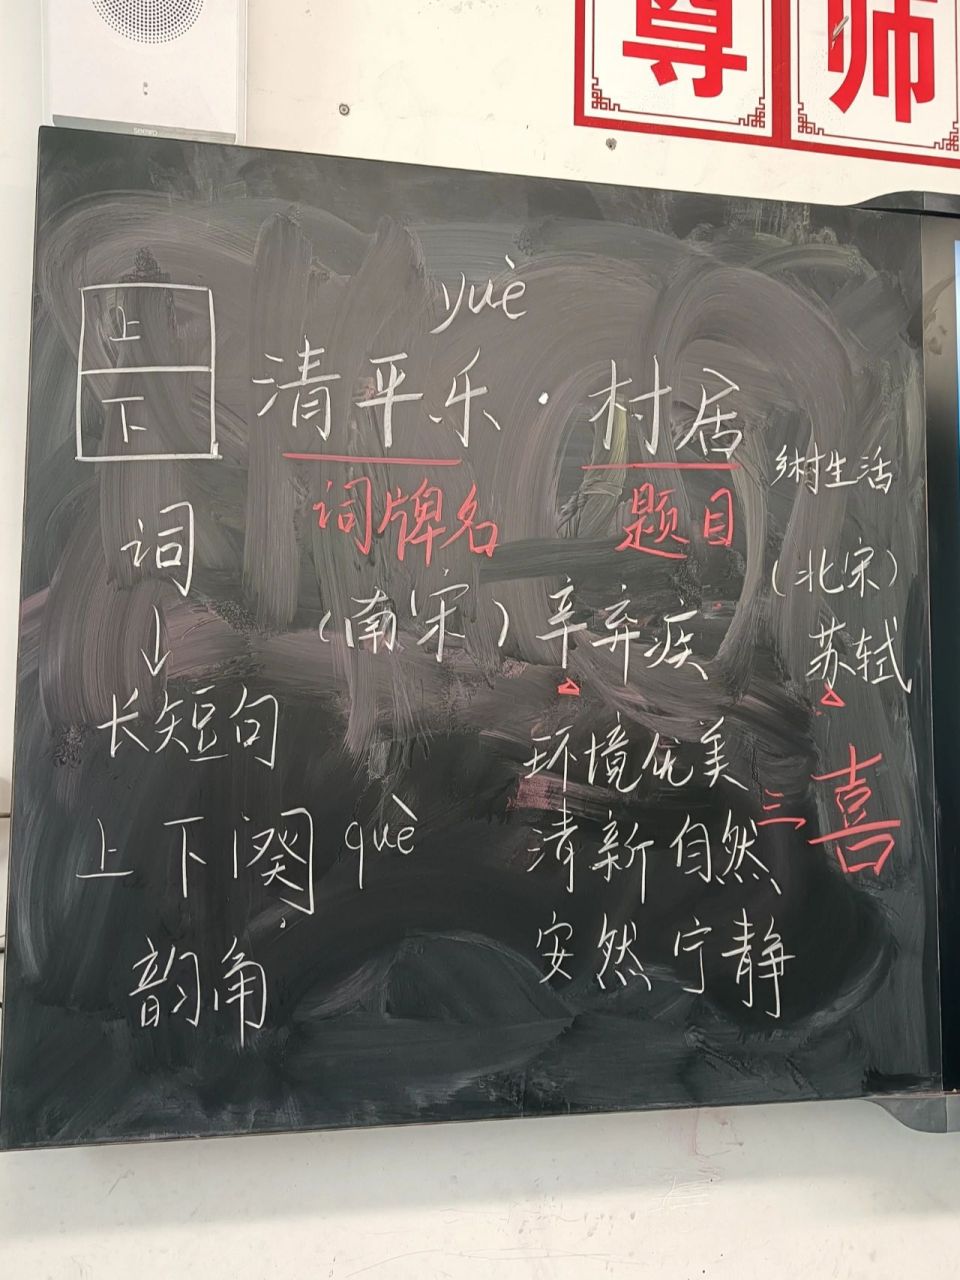 尊师
上
下
yuè
清平乐·村居
乡村生活
词牌名 题目
词
(南宋)辛弃疾
(北宋)
苏轼
长短句
环境优美
三喜
上下阕 què
清新自然
安然宁静
韵角